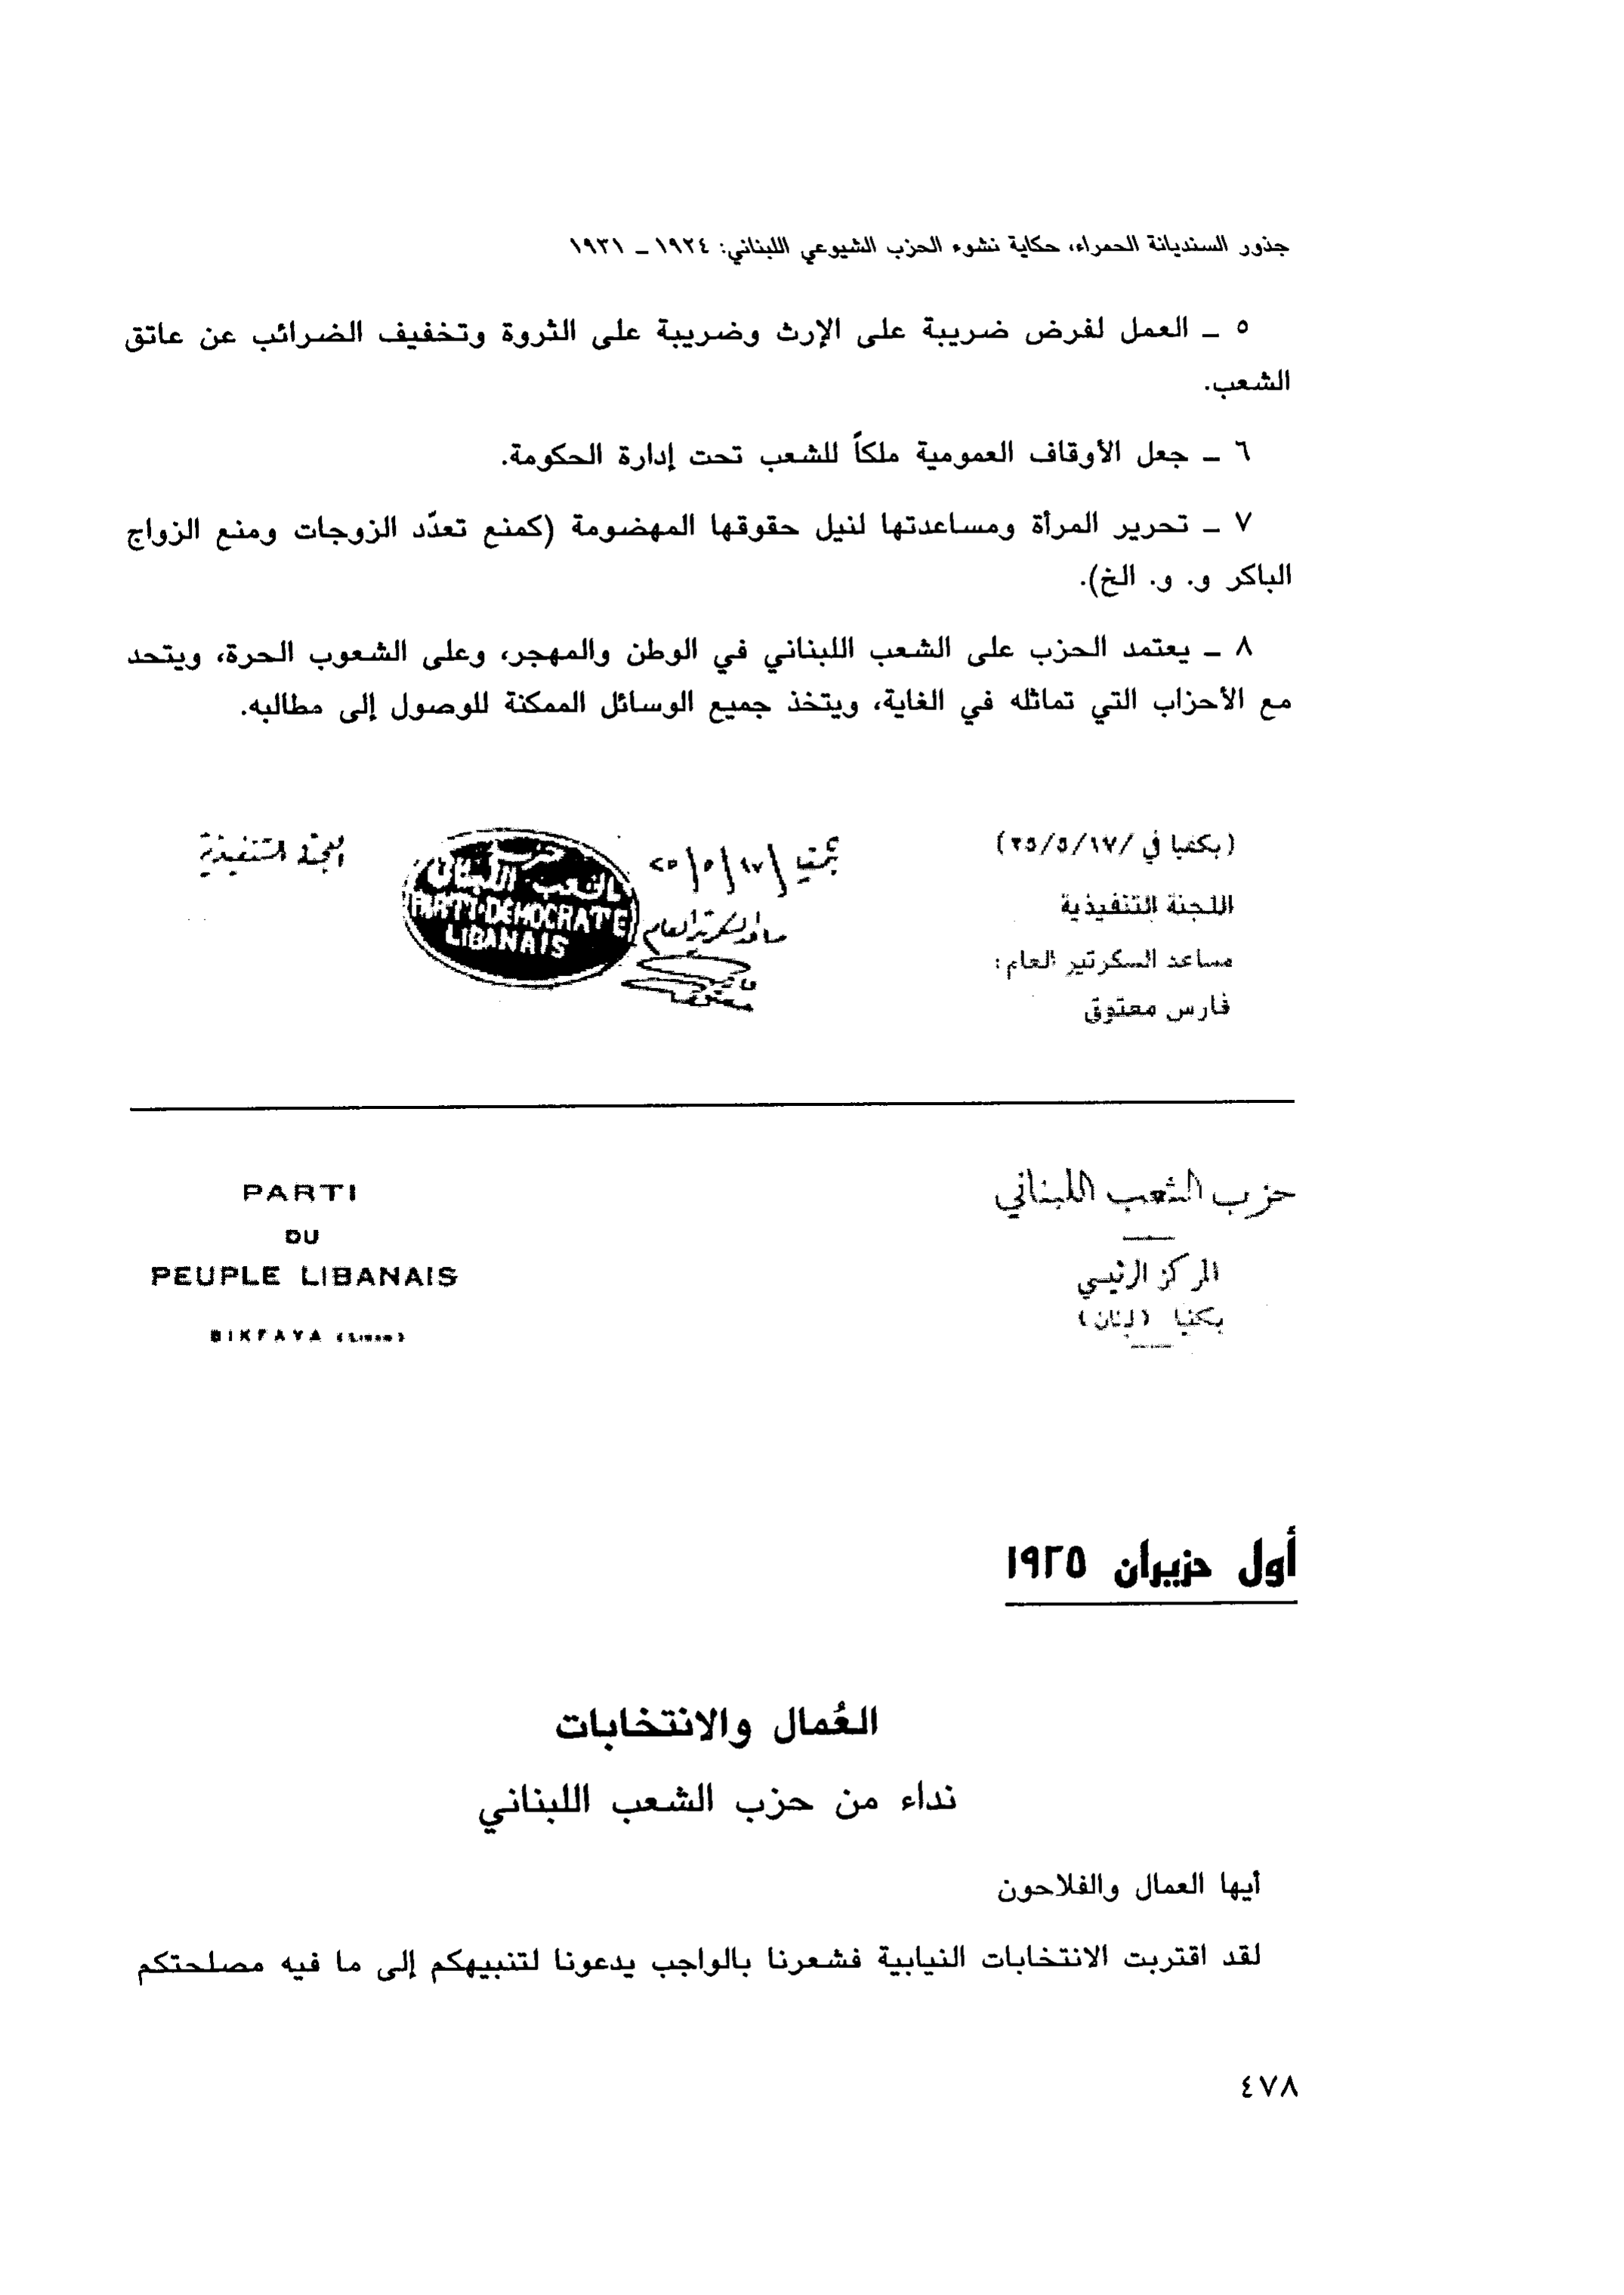 جذور السنديانة الحمراء، حكاية نشوء الحزب الشيوعي اللبناني: ١٩٢٤ – ١٩٣١
٥ – العمل لفرض ضريبة على الإرث وضريبة على الثروة وتخفيف الضرائب عن عاتق
الشعب.
٦ – جعل الأوقاف العمومية ملكاً للشعب تحت إدارة الحكومة.
٧ – تحرير المرأة ومساعدتها لنيل حقوقها المهضومة (كمنع تعدّد الزوجات ومنع الزواج
الباكر و. و. الخ).
٨ – يعتمد الحزب على الشعب اللبناني في الوطن والمهجر، وعلى الشعوب الحرة، ويتحد
مع الأحزاب التي تماثله في الغاية، ويتخذ جميع الوسائل الممكنة للوصول إلى مطالبه.
(بكفيا في /١٧/٥/٢٥)
اللجنة التنفيذية
مساعد السكرتير العام:
فارس معتوق
بكفيا ١٧/٥/٢٥
مساعد السكرتير العام
فارس معتوق
حزب
الشعب اللبناني
PARTI-DÉMOCRATE
LIBANAIS
اللجنة التنفيذية
حزب الشعب اللبناني
المركز الرئيسي
بكفيا (لبنان)
PARTI
DU
PEUPLE LIBANAIS
BIKFAYA (Liban)
أول حزيران ١٩٢٥
العُمال والانتخابات
نداء من حزب الشعب اللبناني
أيها العمال والفلاحون
لقد اقتربت الانتخابات النيابية فشعرنا بالواجب يدعونا لتنبيهكم إلى ما فيه مصلحتكم
٤٧٨